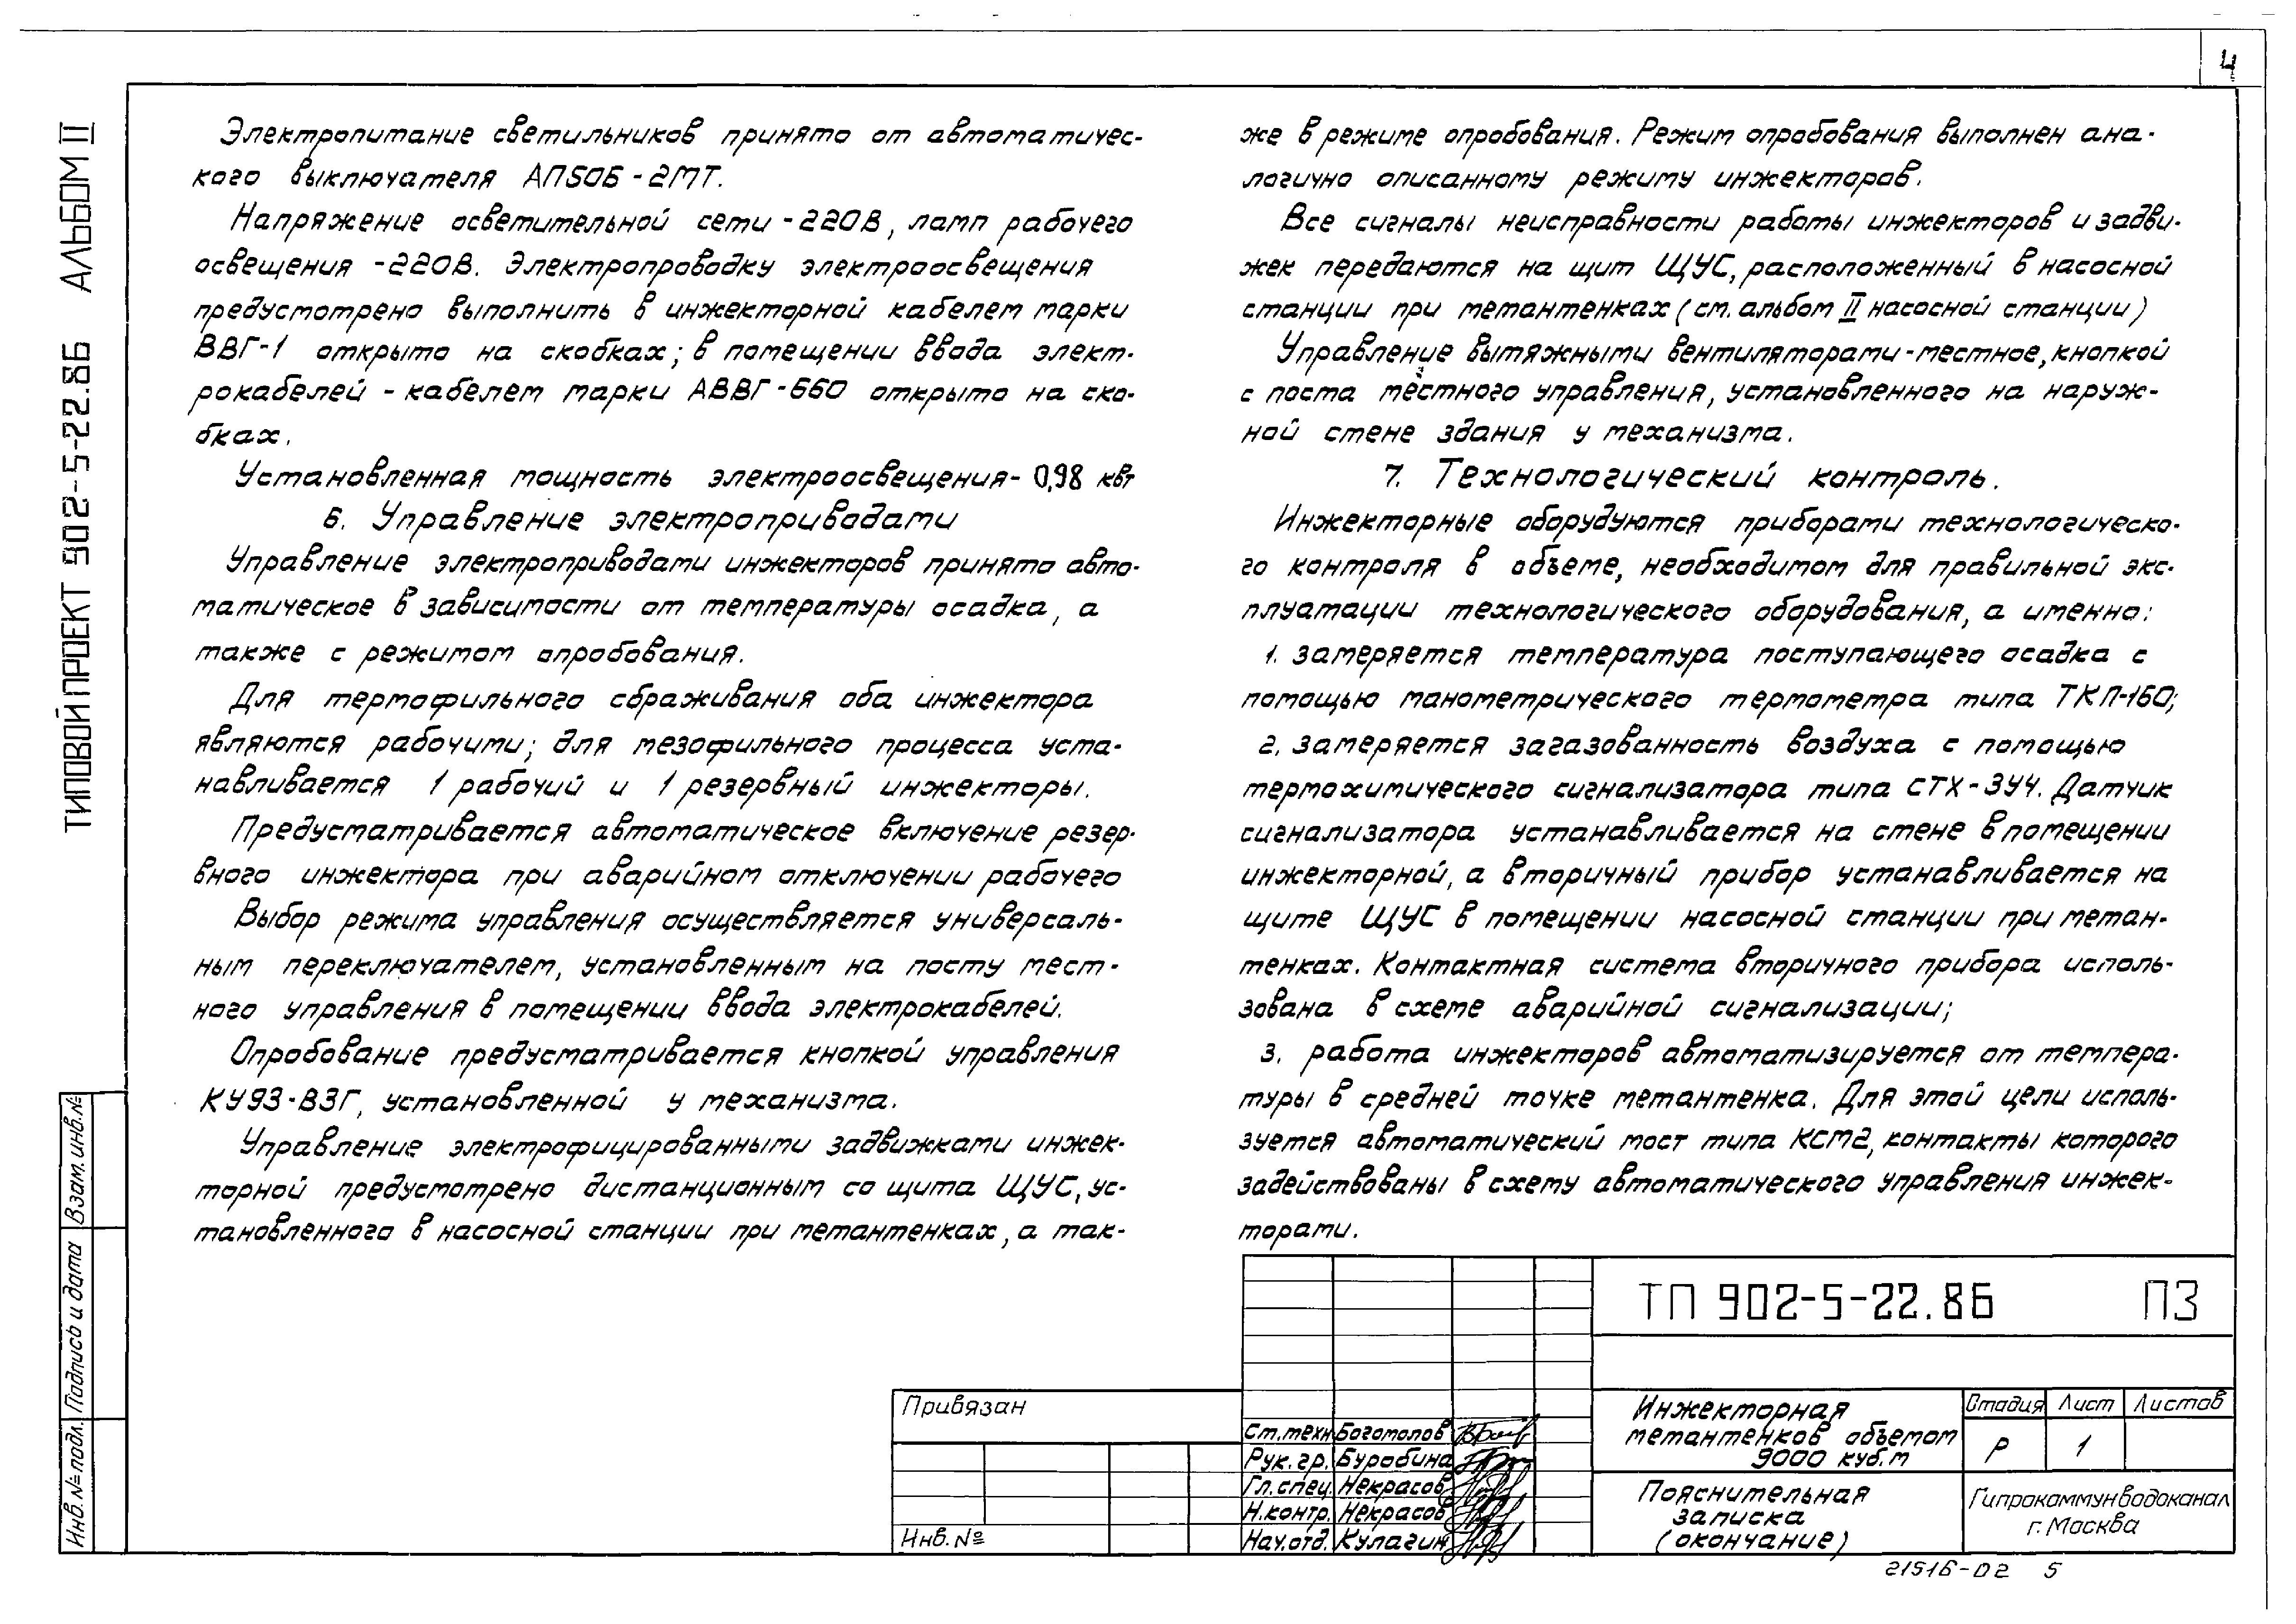 4
ТИПОВОЙ ПРОЕКТ 902-5-22.86 АЛЬБОМ II
Электропитание светильников принято от автоматичес-
кого выключателя АП50Б-2МТ.
Напряжение осветительной сети -220В, ламп рабочего
освещения -220В. Электропроводку электроосвещения
предусмотрено выполнить в инжекторной кабелем марки
ВВГ-1 открыто на скобках; в помещении ввода элект-
рокабелей - кабелем марки АВВГ-660 открыто на ско-
бках.
Установленная мощность электроосвещения- 0,98 квт
6. Управление электроприводами
Управление электроприводами инжекторов принято авто-
матическое в зависимости от температуры осадка, а
также с режимом опробования.
Для термофильного сбраживания оба инжектора
являются рабочими; для мезофильного процесса уста-
навливается 1 рабочий и 1 резервный инжекторы.
Предусматривается автоматическое включение резер-
вного инжектора при аварийном отключении рабочего
Выбор режима управления осуществляется универсаль-
ным переключателем, установленным на посту мест-
ного управления в помещении ввода электрокабелей.
Опробование предусматривается кнопкой управления
КУ93-ВЗГ, установленной у механизма.
Управление электрофицированными задвижками инжек-
торной предусмотрено дистанционным со щита ЩУС, ус-
тановленного в насосной станции при метантенках, а так-
же в режиме опробования. Режим опробования выполнен ана-
логично описанному режиму инжекторов.
Все сигналы неисправности работы инжекторов и задви-
жек передаются на щит ЩУС, расположенный в насосной
станции при метантенках (см. альбом II насосной станции)
Управление вытяжными вентиляторами-местное, кнопкой
с поста местного управления, установленного на наруж-
ной стене здания у механизма.
7. Технологический контроль.
Инжекторные оборудуются приборами технологическо-
го контроля в объеме, необходимом для правильной экс-
плуатации технологического оборудования, а именно:
1. замеряется температура поступающего осадка с
помощью манометрического термометра типа ТКП-160;
2. замеряется загазованность воздуха с помощью
термохимического сигнализатора типа СТХ-3У4. Датчик
сигнализатора устанавливается на стене в помещении
инжекторной, а вторичный прибор устанавливается на
щите ЩУС в помещении насосной станции при метан-
тенках. Контактная система вторичного прибора исполь-
зована в схеме аварийной сигнализации;
3. работа инжекторов автоматизируется от темпера-
туры в средней точке метантенка. Для этой цели исполь-
зуется автоматический мост типа КСМ2, контакты которого
задействованы в схему автоматического управления инжек-
торами.
Взам. инв. №
Подпись и дата
Инв. № подл.
Привязан
Инв. №
Ст.техн. Богомолов
Рук. гр. Буробина
Гл. спец. Некрасов
Н.контр. Некрасов
Нач.отд. Кулагин
ТП 902-5-22.86 ПЗ
Инжекторная
метантенков объемом
9000 куб.м
Стадия Лист Листов
Р 1
Пояснительная
записка
(окончание)
Гипрокоммунводоканал
г. Москва
21516-02 5